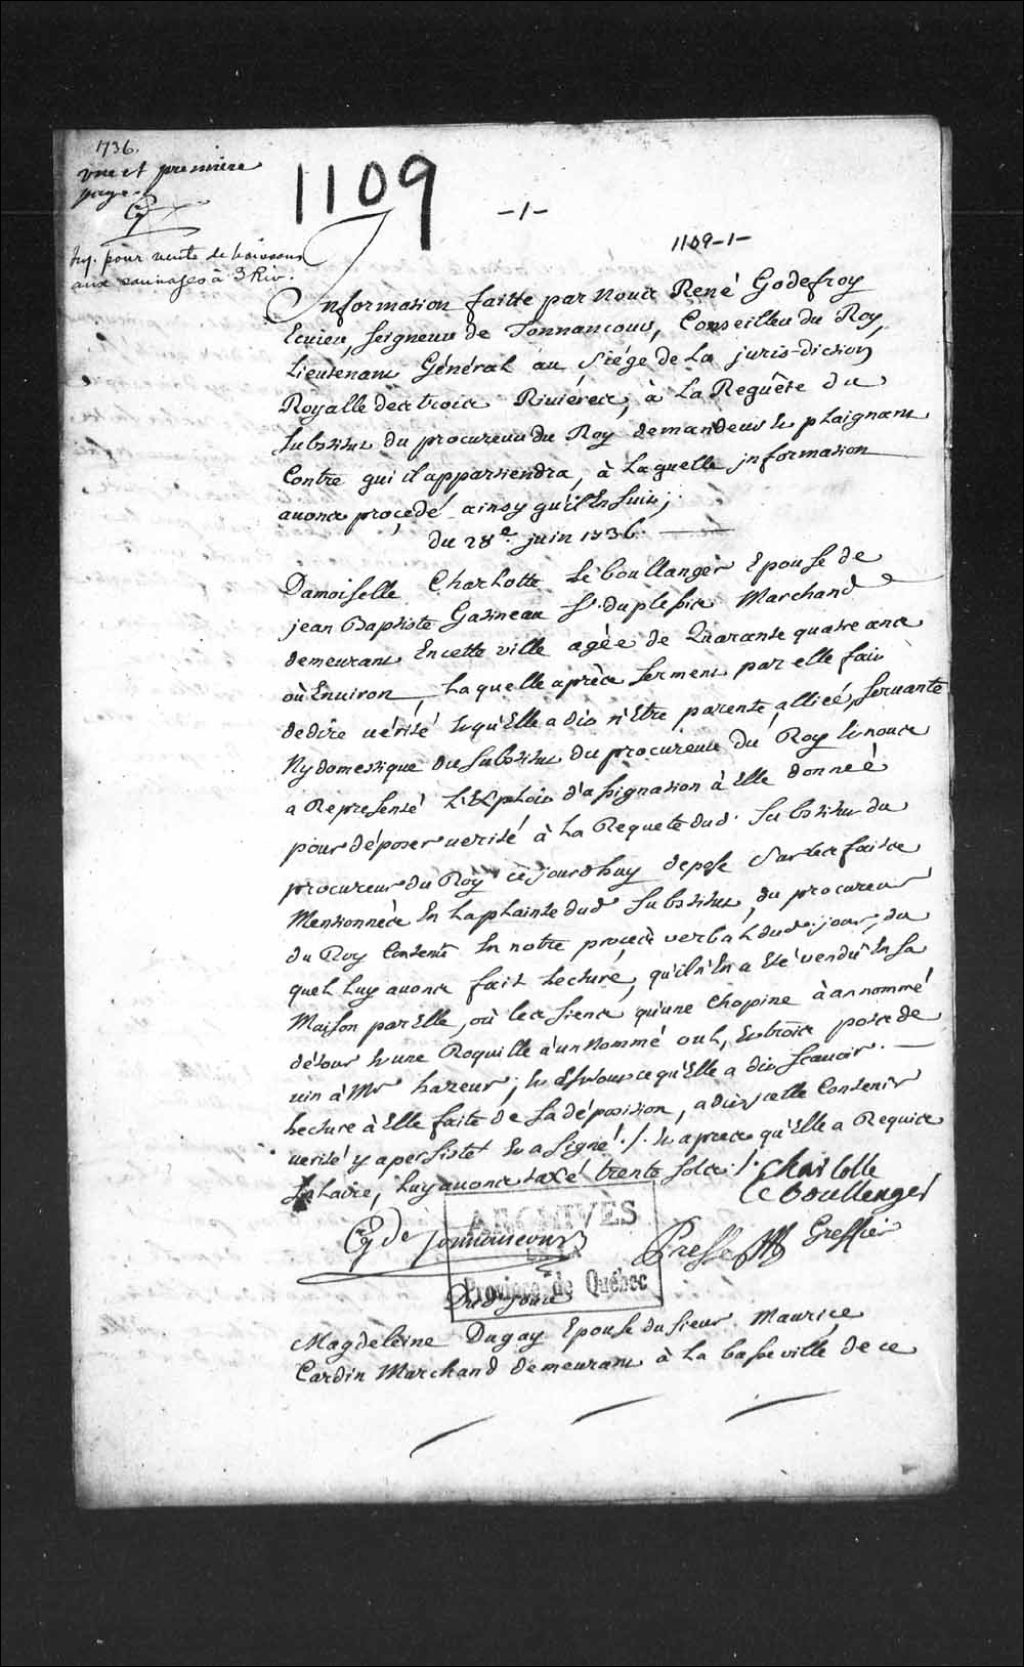 1736.
vne et premiere
page.
Inf. pour vente de boissons
aux sauvages à 3 Riv.
1109
-1-
1109-1-
Jnformation faitte par nous René Godefroy
Ecuier, seigneur de Tonnancour, Conseiller du Roy,
Lieutenant Général au siége de la juris-diction
Royalle des trois Riviéres, à la Requête du
substitut du procureur du Roy demandeur et plaignant
Contre qui il appartiendra, à laquelle jnformation
auons procédé ainsy qu'il En suit;
du 28e juin 1736.
Damoiselle Charlotte Leboullanger Epouse de
jean Baptiste Gatineau sr. duplessis Marchand
demeurant En cette ville agée de Quarante quatre ans
où Enuiron, laquelle après serment par elle fait
de dire uérité et qu'Elle a dit n'Etre parente, alliée, seruante
Ny domestique du substitut du procureur du Roy et nous
a Représenté L'Exploit d'assignation à Elle donneé
pour déposer uerité à la Requete dud. substitut du
procureur du Roy cejourd'huy depose sur les faits
Mentionnés En la plainte dud substitut du procureur
du Roy Contenüe En notre procès verbal dud. jour, du
quel luy auons fait Lecture, qu'il n'En a Eté vendû En sa
Maison par Elle, où les siens qu'une Chopine à un nommé
détour et une Roquille à un Nommé ouh, et trois pots de
uin à Mr hazeur; et Est tout ce qu'Elle a dit scauoir.
Lecture à Elle faite de sa déposition, a dit jcelle Contenir
uerité y a persisté et a signé ./. et après qu'Elle a Requis
salaire, luy auons taxé trente sols ./.
Charlotte
Leboullenger
Gg de Tonnancour
Presse Greffier
ARCHIVES
DE LA
Province de Québec
Dud. jour
Magdeleine Dugay Epouse du sieur Maurice
Cardin Marchand demeurant à la basse ville de ce